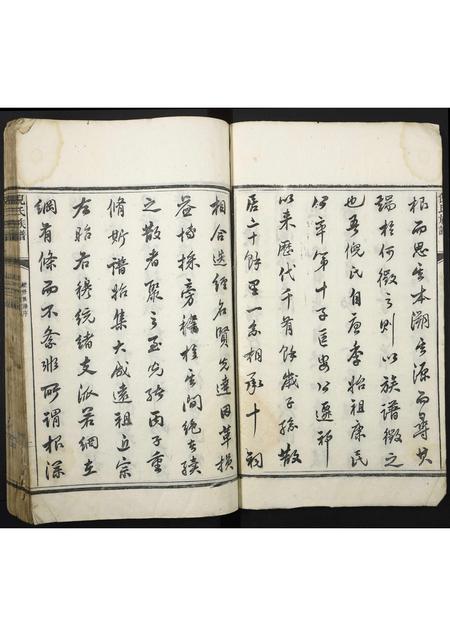 根而思其本溯其源而尋其
端於何徵之則以族譜徵之
也吾倪氏自唐季始祖康民
公率第十子匡公遷祁
以来歷代千有餘歲子孫散
居二十餘里一系相承十祠
相合迭經名賢先達因革損
益博採旁稽於世間絶者續
之散者聚之至光緒丙子重
脩斯譜始集大成遠祖近宗
左昭右穆統緒支派若網在
綱有條而不紊非所謂根深
倪氏族譜